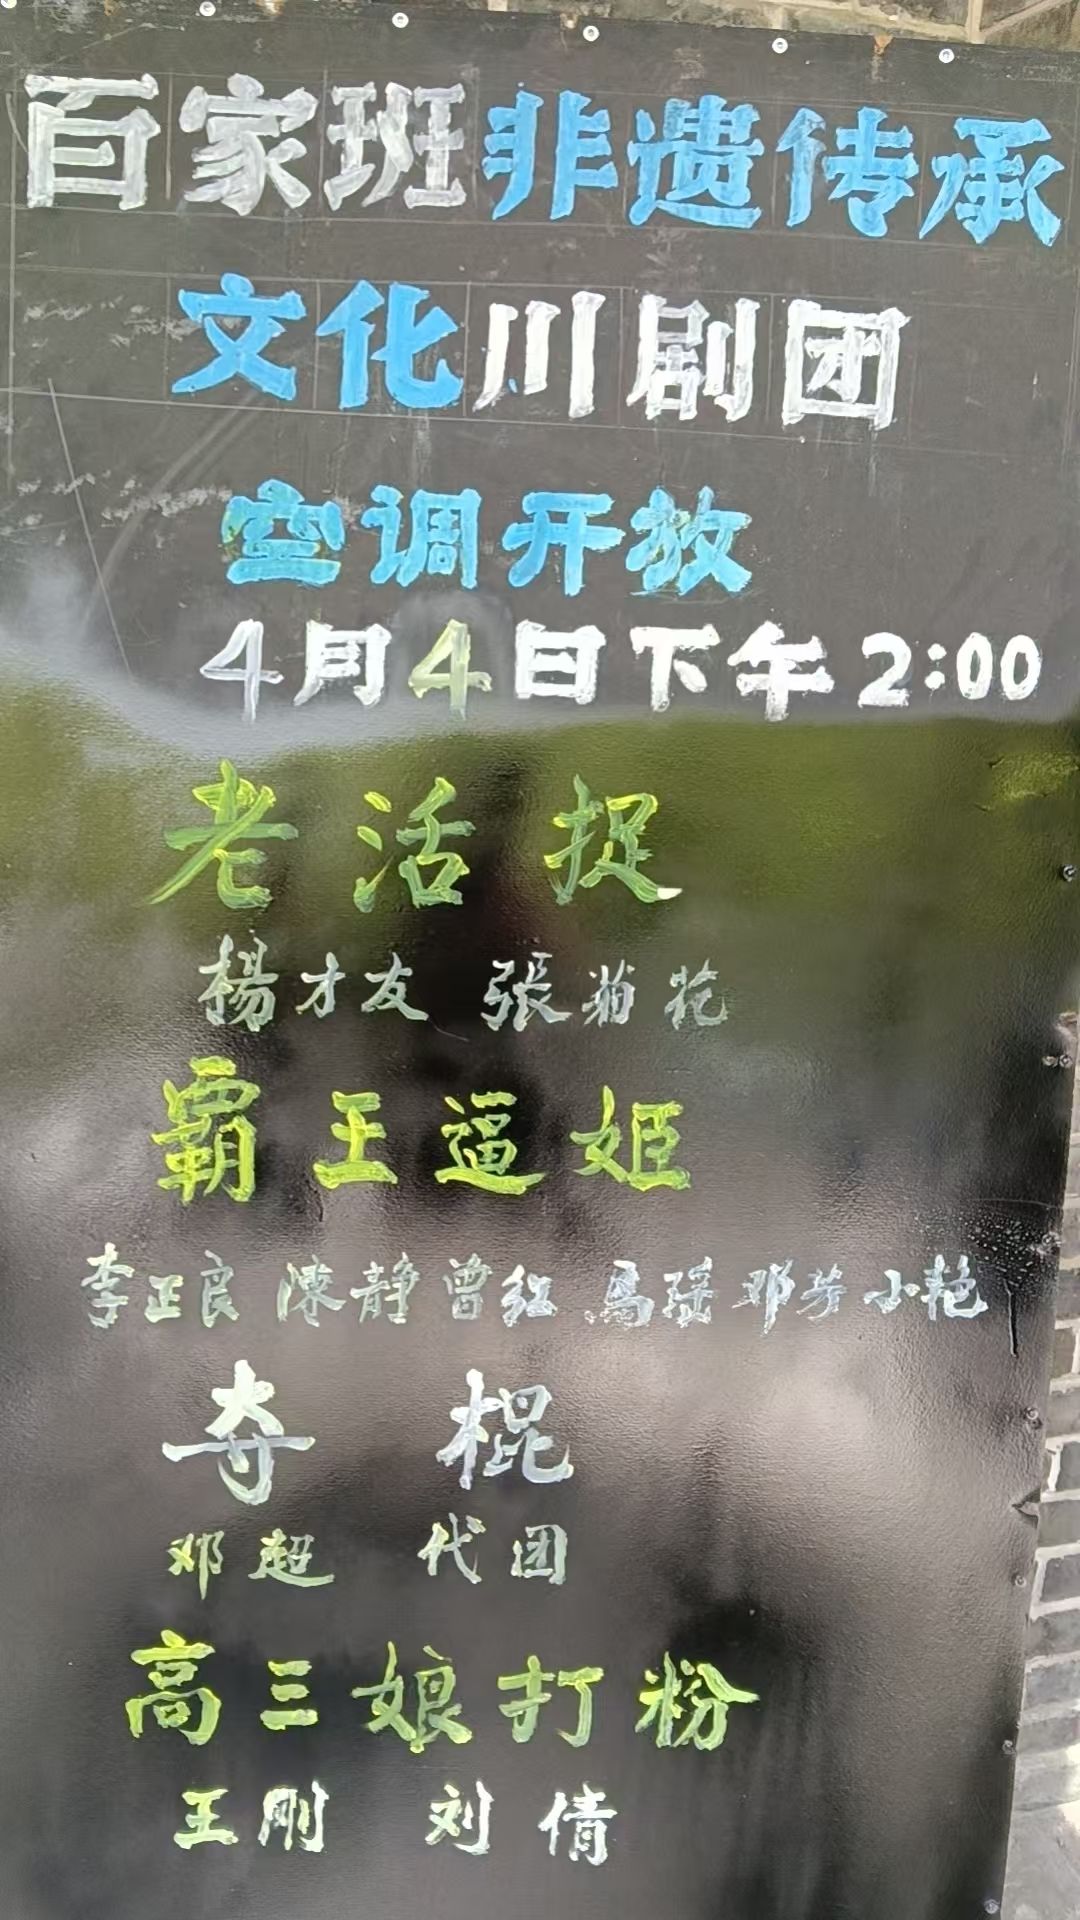 百家班非遗传承
文化川剧团
空调开放
4月4日下午2:00
老活捉
楊才友 張菊花
霸王逼姬
李正良 陳静 曾红 馬瑶 邓芳 小艳
夺棍
邓超 代团
高三娘打粉
王刚 刘倩